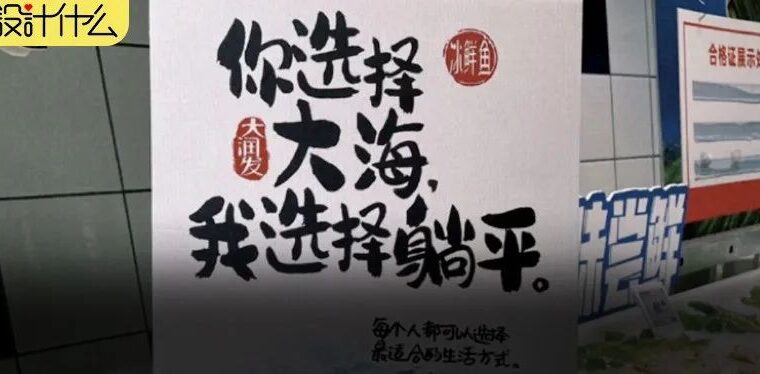 設計什么
你选择
冰鲜鱼
大润发
大海，
我选择躺平。
每个人都可以选择
最适合的生活方式。
合格证展示处